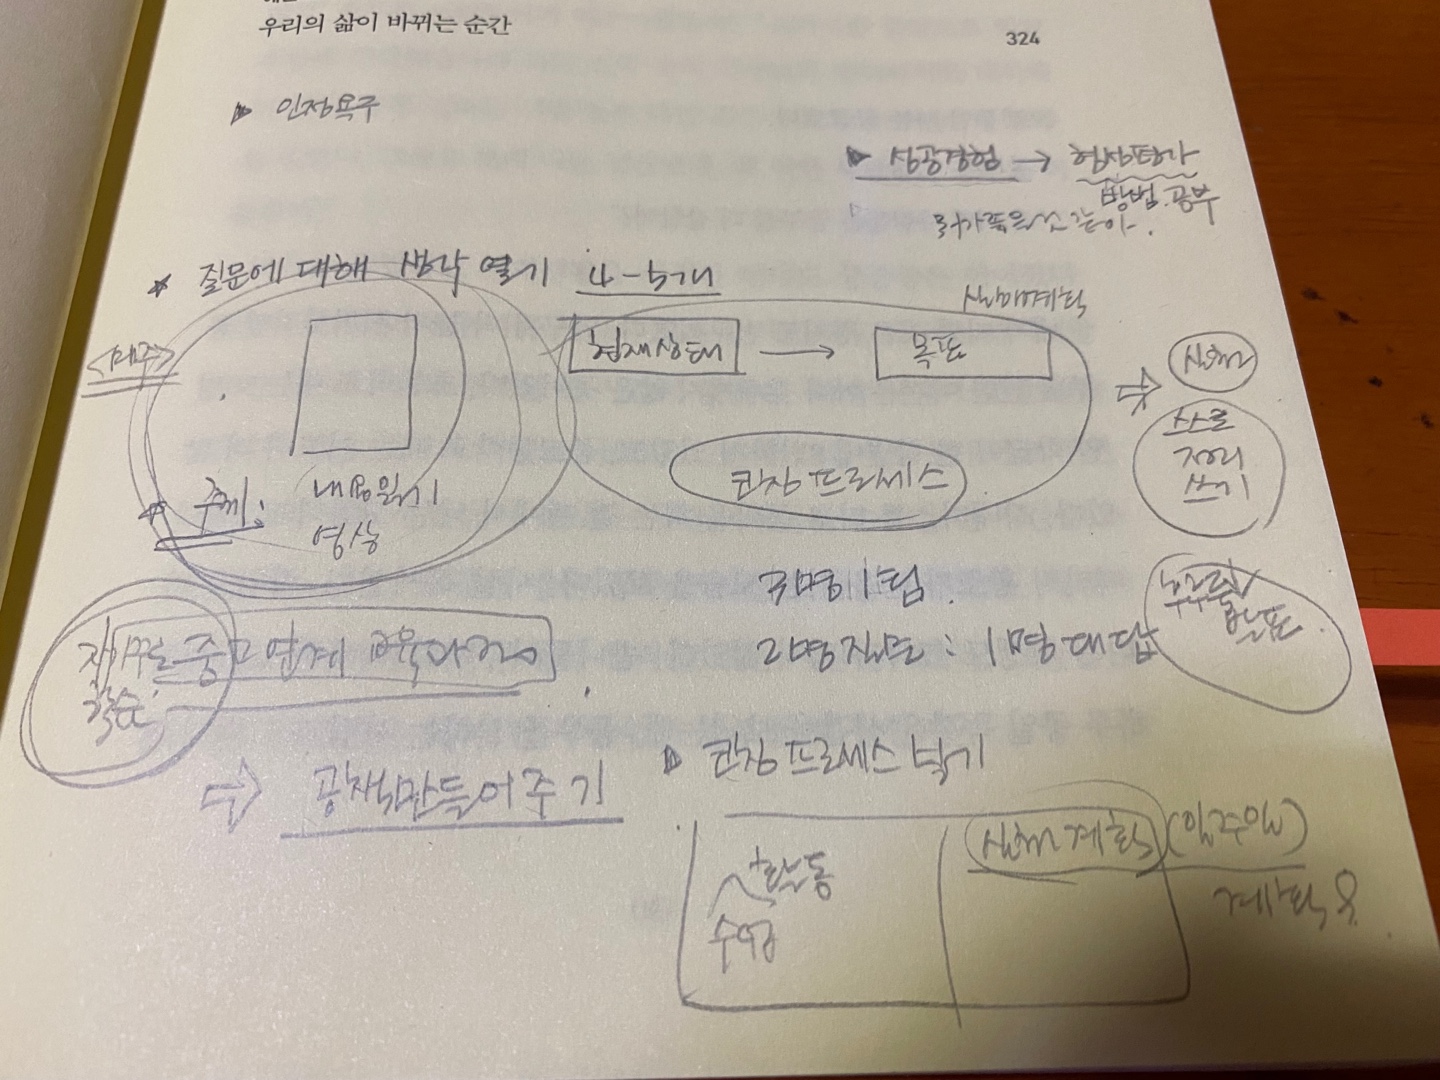 우리의 삶이 바뀌는 순간
324
▶ 인정욕구
▶ 성공경험 → 협상탐가
방법.공부
★ 질문에 대해 생각 열기 4-5개
실행계획
<매주>
현재상태 → 목표
⇨ 실행
스스로
정리
쓰기
★ 주제:
내용읽기
영상
코칭 프로세스
3명 1팀.
2명질문 : 1명 대답
발표
자기주도
학습
중고 연계 교육과정
⇨ 공책만들어주기
▶ 코칭 프로세스 넣기
수업
+활동
실행계획 (일주일)
계획용